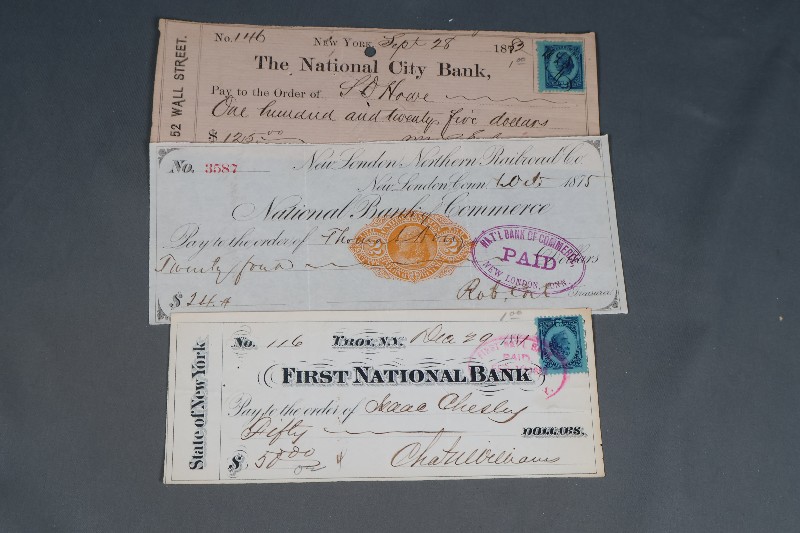 52 WALL STREET.
No. 146 NEW YORK, Sept 28 187
1.00
The National City Bank,
Pay to the Order of S D Howe
One hundred and twenty five dollars
$ 125.00
No. 3587 New London Northern Railroad Co.
New London Conn. 1875
National Bank of Commerce
Pay to the order of Thomas
Twenty four Dollars
NAT'L BANK OF COMMERCE,
PAID
NEW LONDON, CONN.
$ 24.
Treasurer
1.00
State of New York
No. 116 TROY, N.Y. Dec 29 1881
FIRST NATIONAL BANK
FIRST NATL BANK
PAID
Pay to the order of Isaac Chesley
Fifty DOLLARS.
$ 50.00
Chas. H. Williams